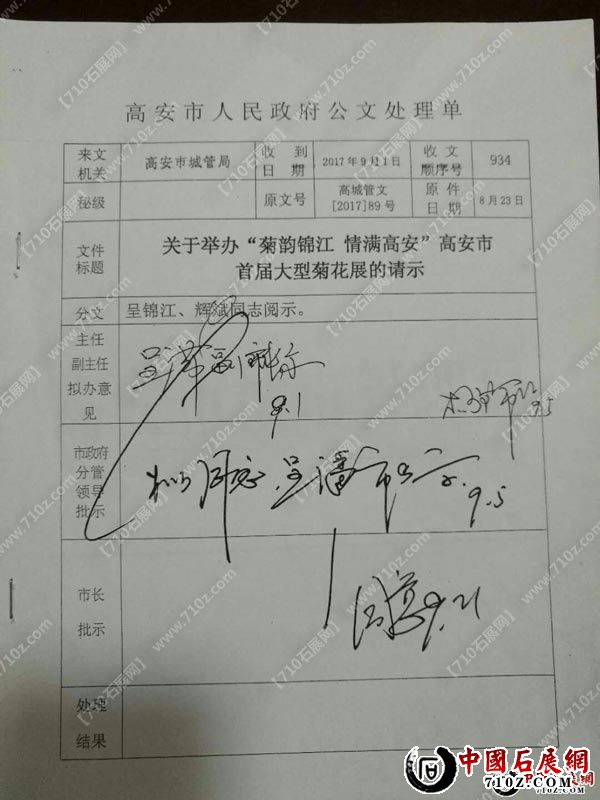 高安市人民政府公文处理单
来文机关 高安市城管局 收到日期 2017年9月1日 收文顺序号 934
秘级 原文号 高城管文[2017]89号 原件日期 8月23日
文件标题 关于举办“菊韵锦江 情满高安”高安市
首届大型菊花展的请示
分文 呈锦江、辉斌同志阅示。
主任
副主任
拟办意
见
9.1
9.5
市政府
分管
领导
批示
9.5
市长
批示
9.21
处理
结果
【710石展网】 www.710z.com
中國石展網
710Z.COM